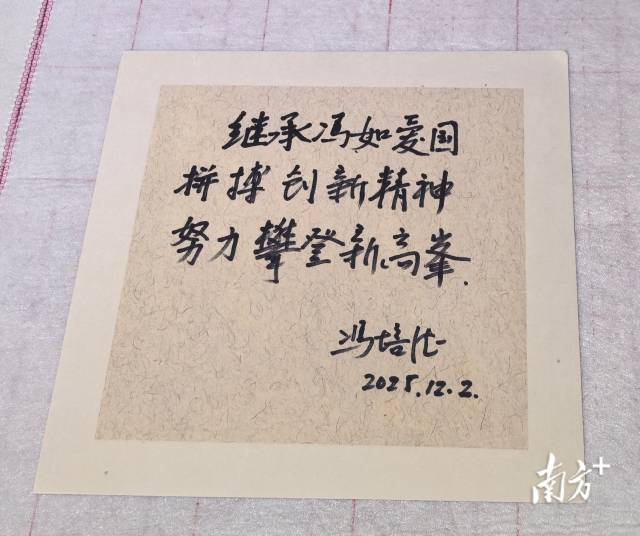 继承冯如爱国
拼搏创新精神
努力攀登新高峯.
冯培
2025.12.2.
南方+